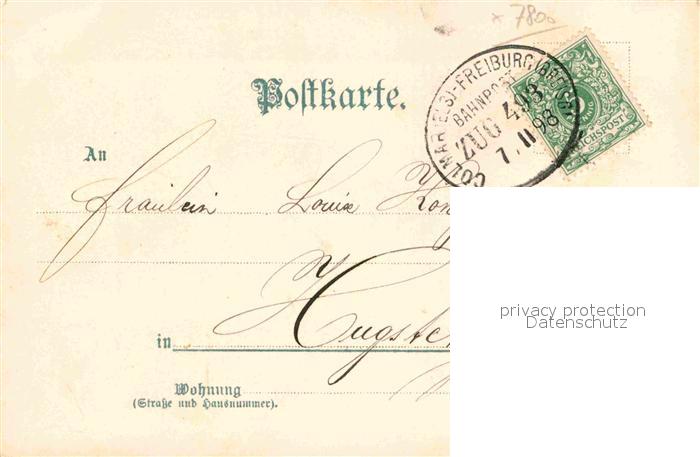 7800
Postkarte.
COLMAR (ELS)-FREIBURG (BREISG)
BAHNPOST
ZUG 493
7.11 98
REICHSPOST
An
Fräulein Louise
in
Wohnung
(Straße und Hausnummer).
privacy protection
Datenschutz